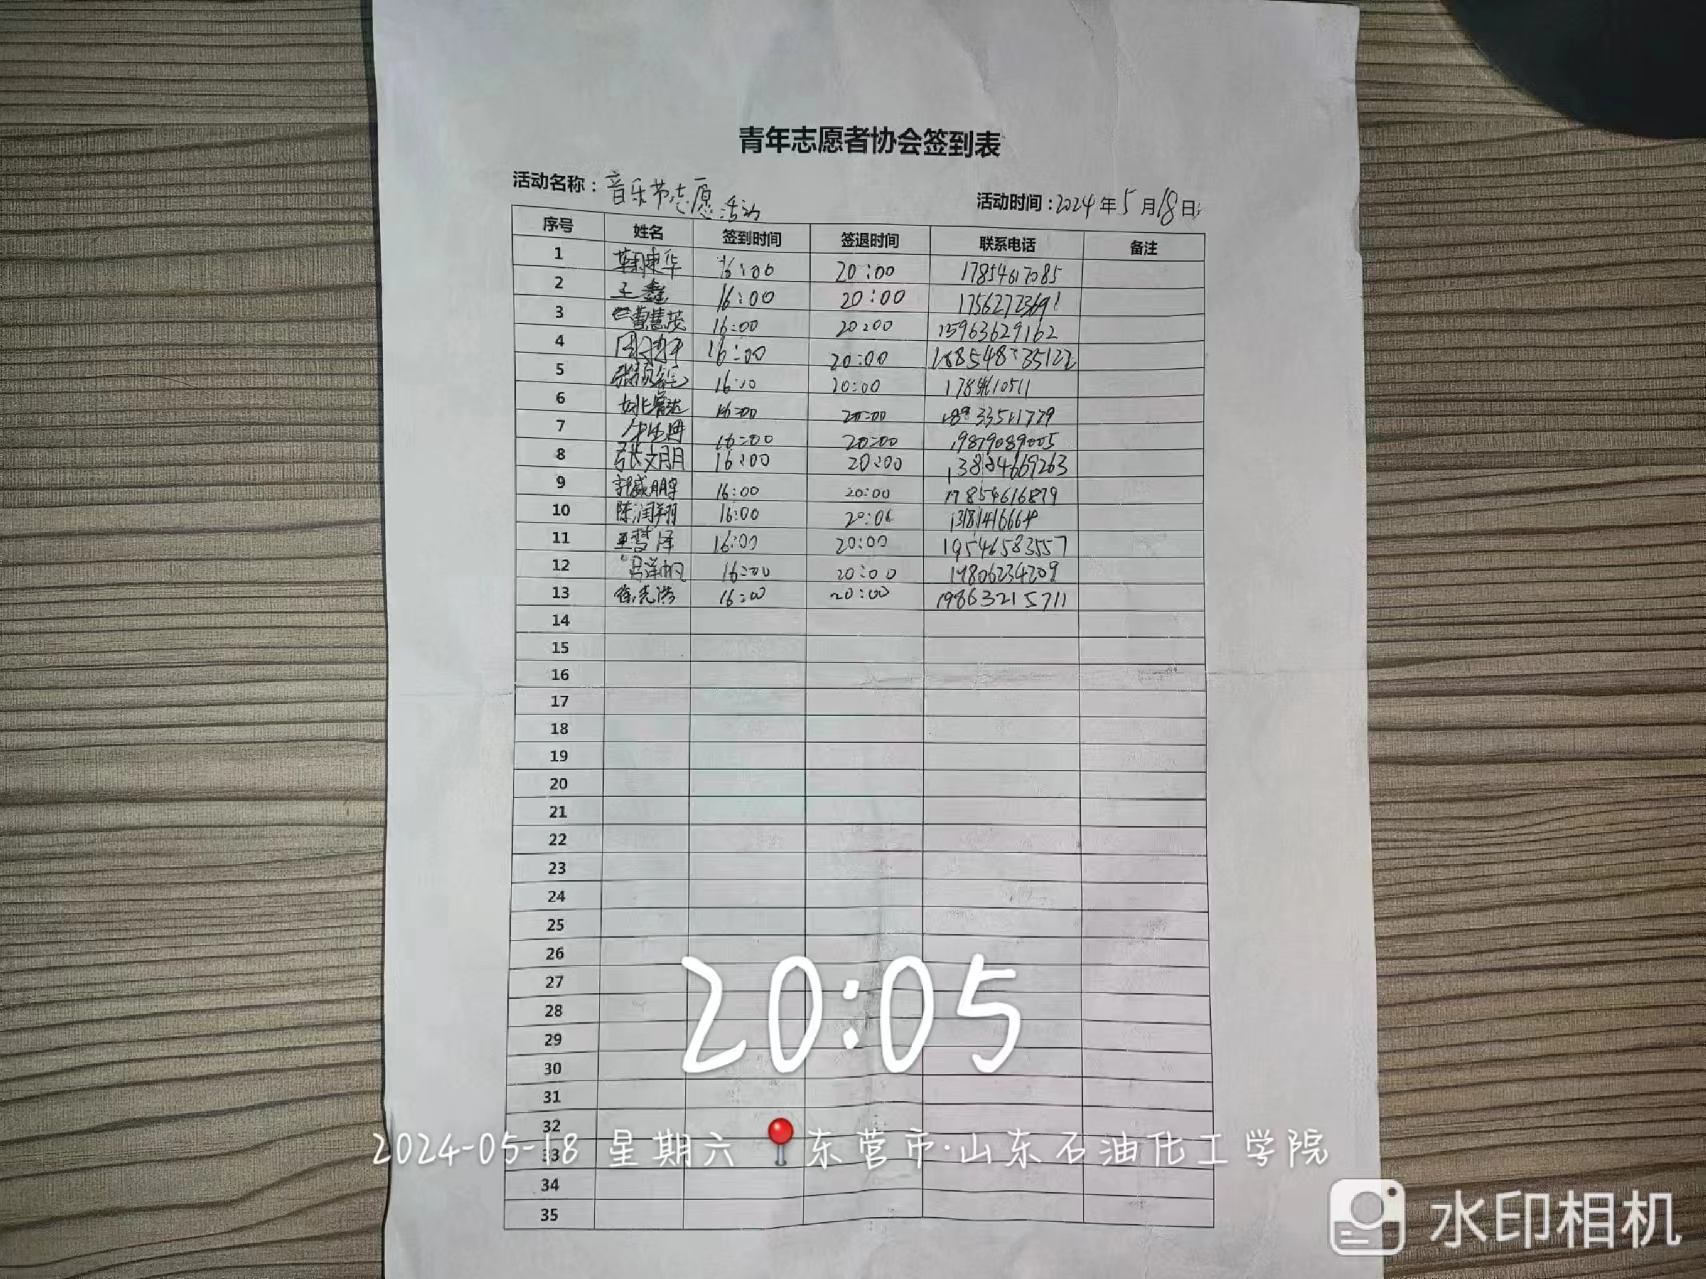 青年志愿者协会签到表
活动名称：音乐节志愿活动 活动时间：2024年5月18日
序号 姓名 签到时间 签退时间 联系电话 备注
1 16:00 20:00 17854617085
2 王鑫 16:00 20:00
3 16:00 20:00 15963629162
4 16:00 20:00
5 20:00
6 16:00 20:00
7 16:00 20:00 19819089005
8 张文朋 16:00 20:00
9 郭威鹏 16:00 20:00 17854616879
10 陈润翔 16:00
11 王梦泽 16:00 20:00 19546583557
12 吕洋帆 16:00 20:00
13 徐先浩 16:00 20:00 19863215711
14
15
16
17
18
19
20
21
22
23
24
25
26
27
28
29
30
31
32
33
34
35
20:05
2024-05-18 星期六 东营市·山东石油化工学院
水印相机